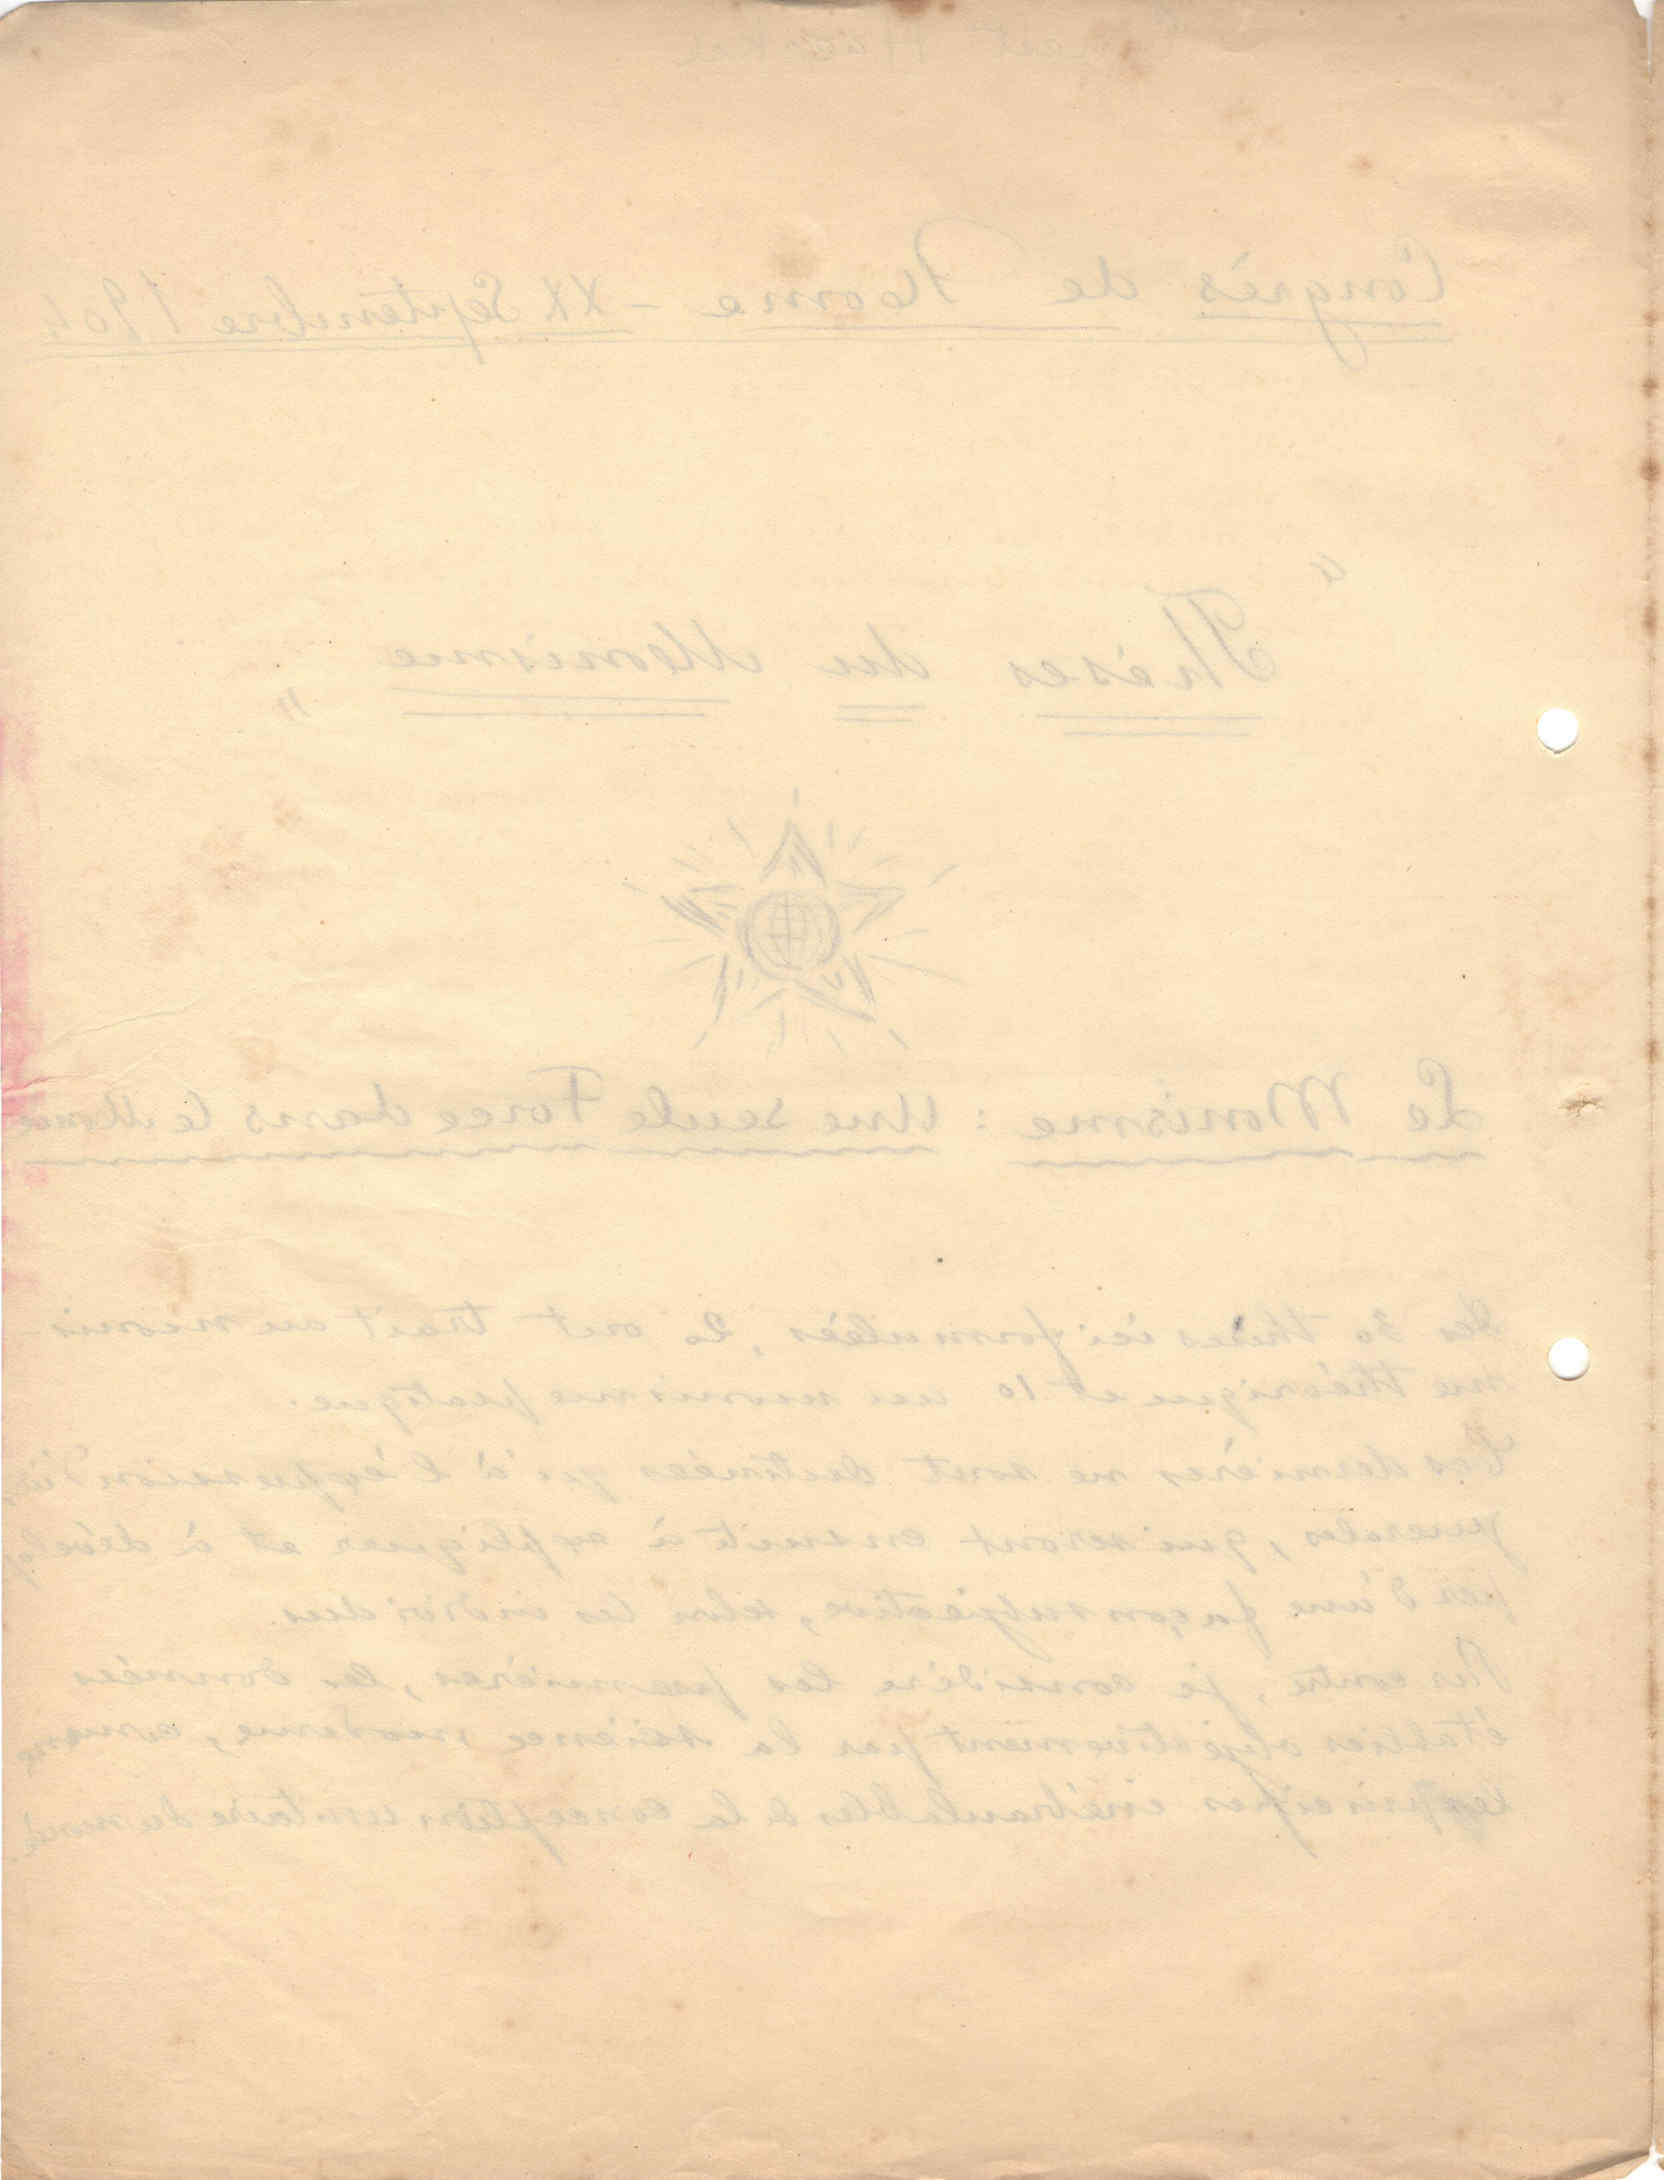 Ernest Haeckel
Congrès de Rome – XX Septembre 1904
"
Thèses du Monisme
"
Le Monisme : Une seule Force dans le Monde
Les 30 thèses ici formulées, 20 ont trait au monis-
me théorique et 10 au monisme pratique.
Ces dernières ne sont destinées qu'à l'expression
générales, qui seront ensuite à expliquer et à dévelop
per d'une façon subjective, selon les individus.
Par contre, je considère les premières, les données
établies objectivement par la science moderne, comme
les principes inébranlables de la conception unitaire du monde.